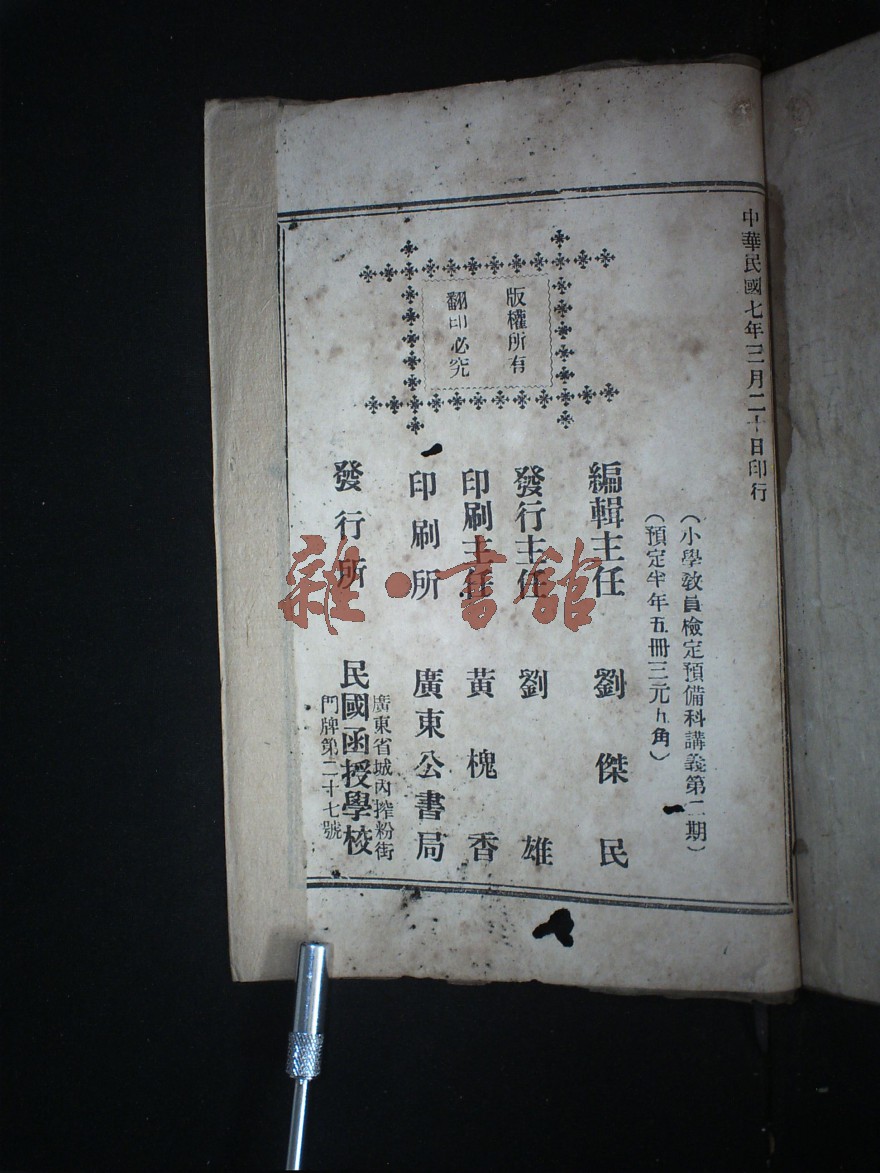 中華民國七年三月二十日印行
（小學教員檢定預備科講義第二期）
（預定半年五冊三元九角）
版權所有
翻印必究
編輯主任　劉傑民
發行主任　劉雄
印刷主任　黃槐香
印刷所　廣東公書局
發行所　民國函授學校
廣東省城內搾粉街
門牌第二十七號
雜·書館